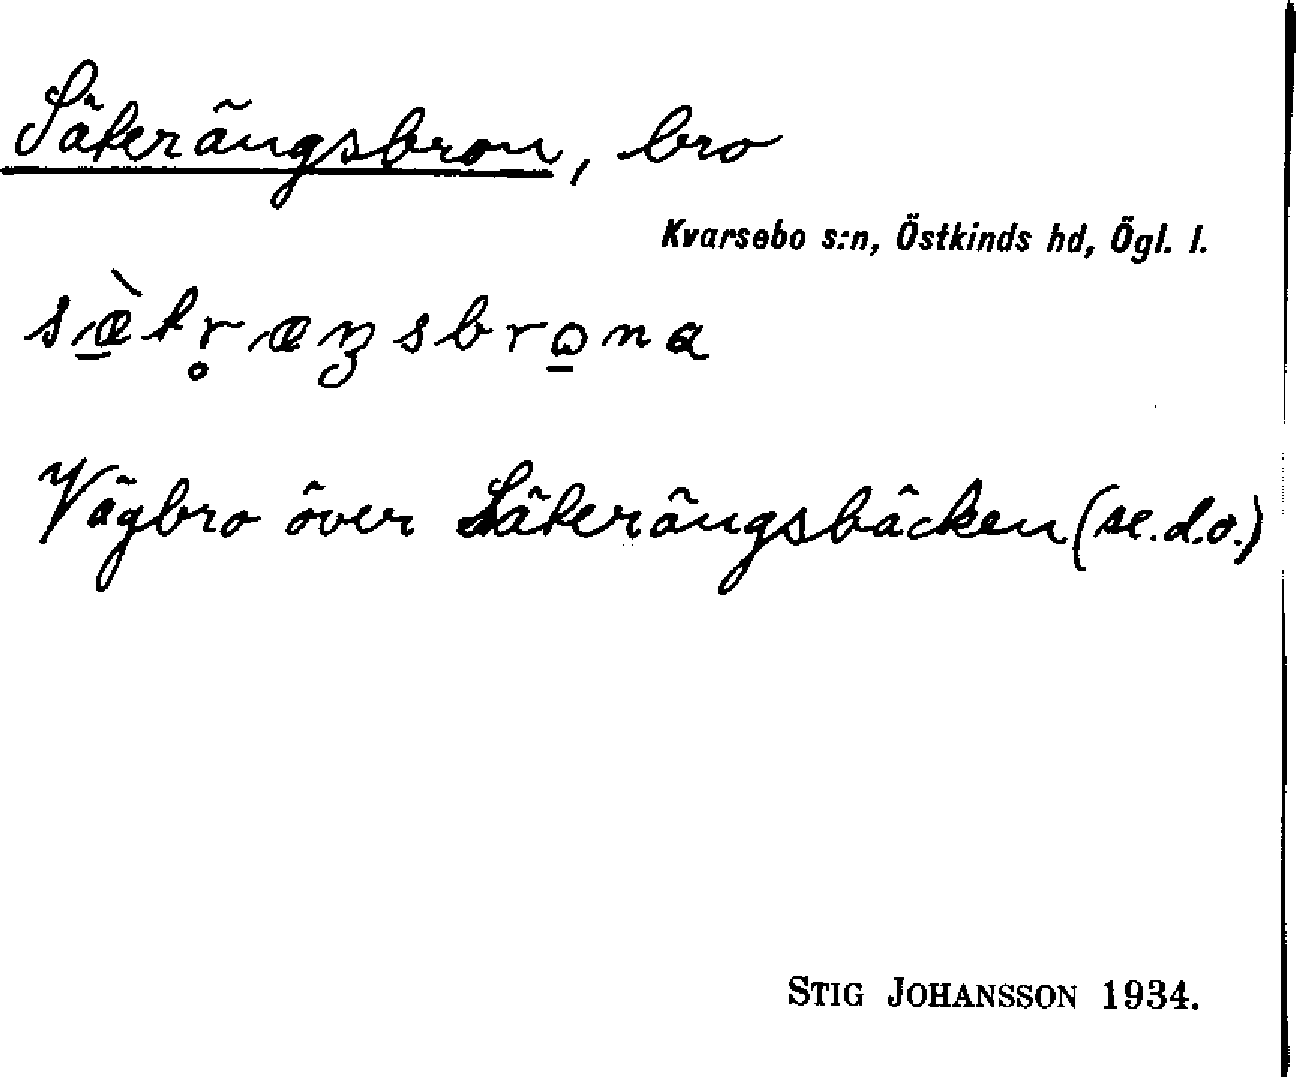 Säterängsbron, bro
Kvarsebo s:n, Östkinds hd, Ögl. l.
sæ̱̀tr̥æŋsbrω̱na
Vägbro över Säterängsbäcken (se.d.o.)
STIG JOHANSSON 1934.